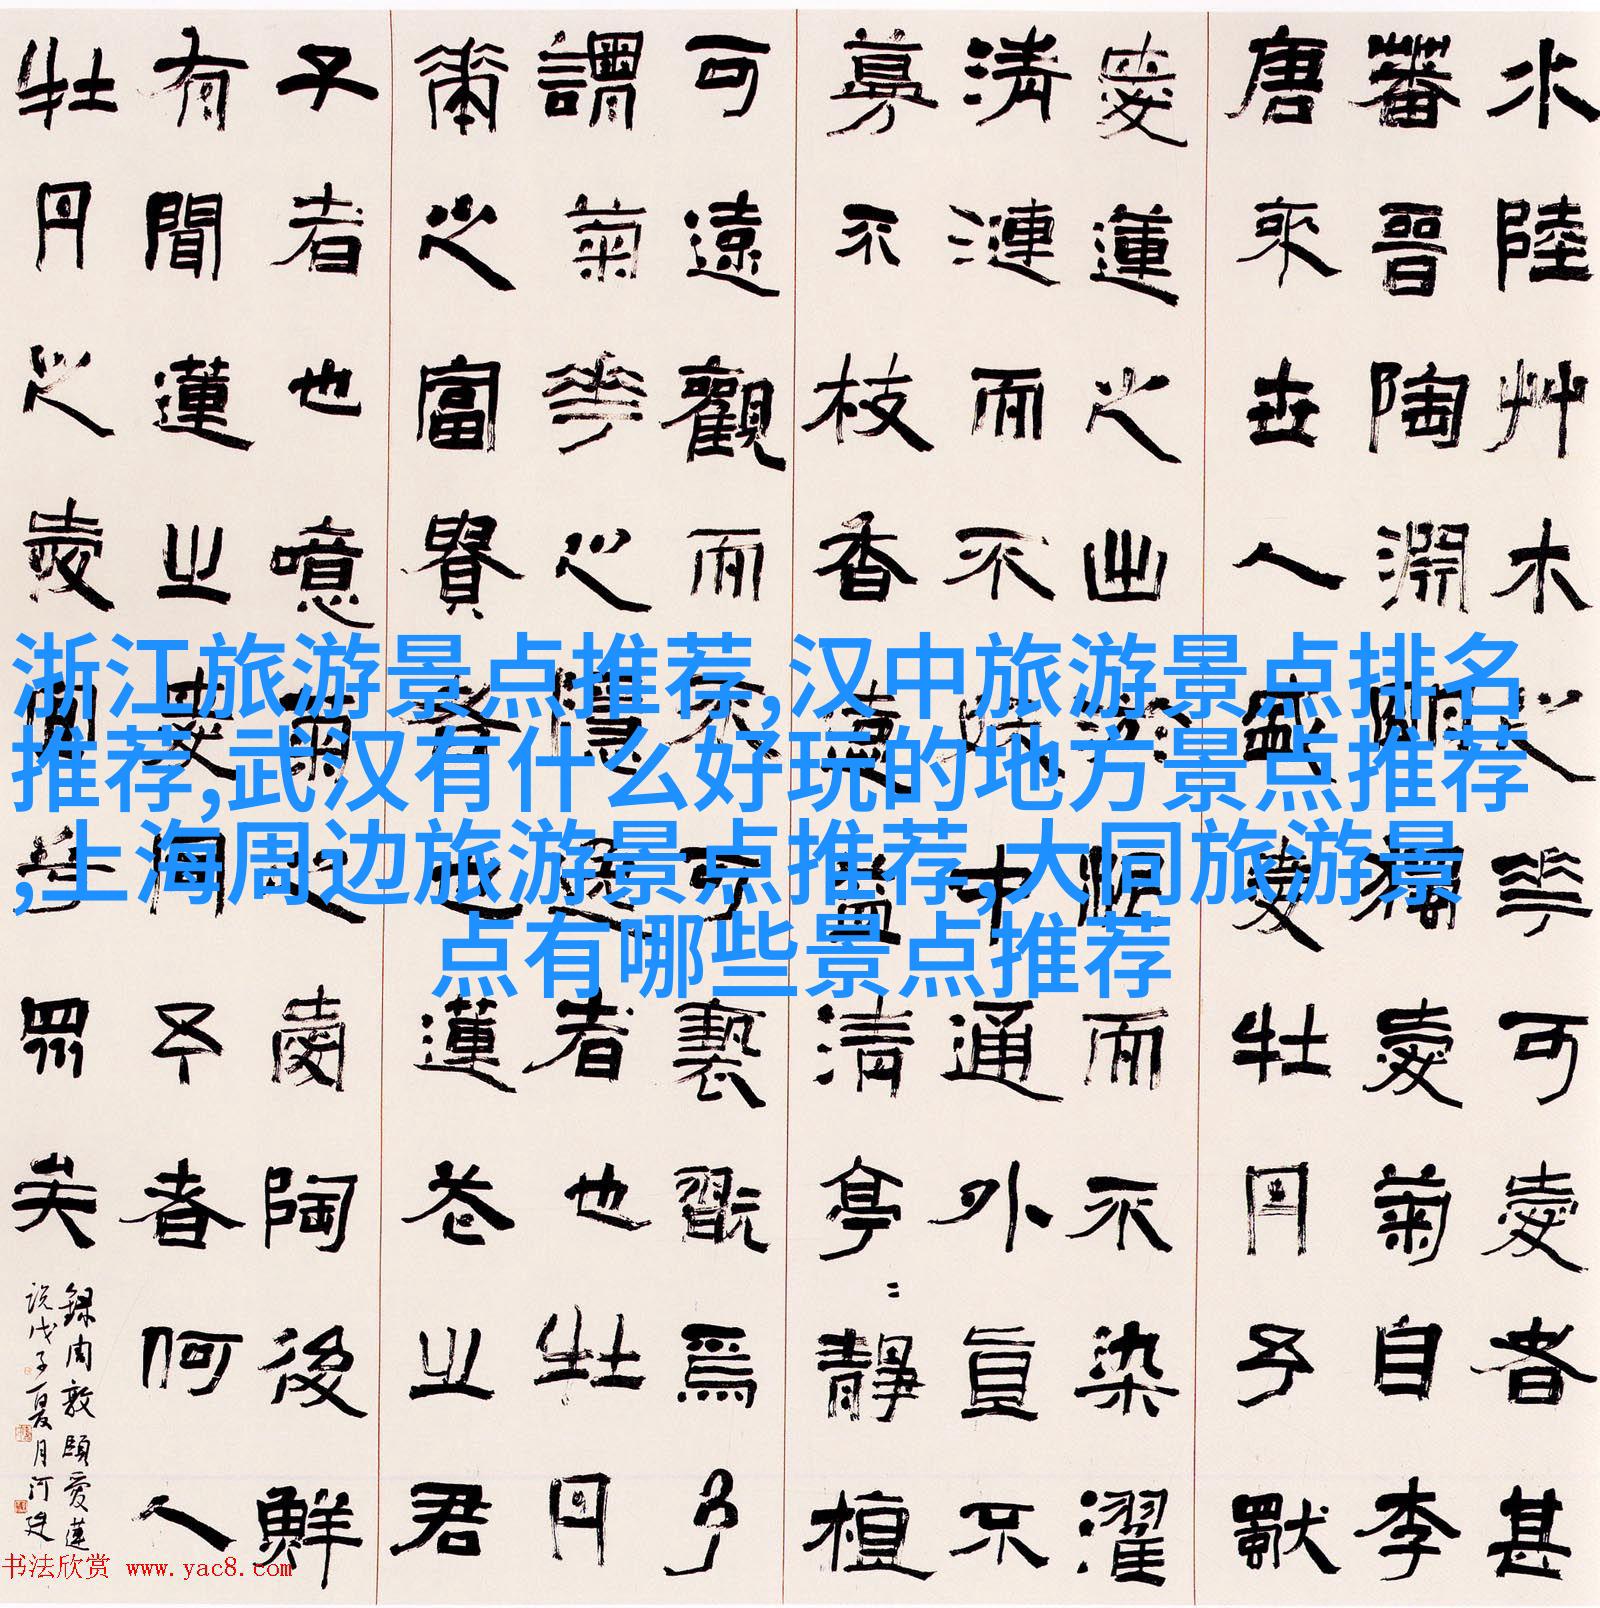 水陸艸木之花可愛者甚
蕃晉陶淵明獨愛菊自李
唐來世人盛愛牡丹予獨
愛蓮之出淤泥而不染濯
清漣而不妖中通外直不
蔓不枝香遠益清亭〻靜植
可遠觀而不可褻翫焉予
謂菊花之隱逸者也牡丹
華之富貴者也蓮花之君
子者也噫菊之愛陶後鮮
有聞蓮之愛同予者何人
牡丹之愛宜乎眾矣
錄周敦頤愛蓮
說戊子夏月河建
浙江旅游景点推荐,汉中旅游景点排名
推荐,武汉有什么好玩的地方景点推荐
,上海周边旅游景点推荐,大同旅游景
点有哪些景点推荐
书法欣赏 www.yac8.com